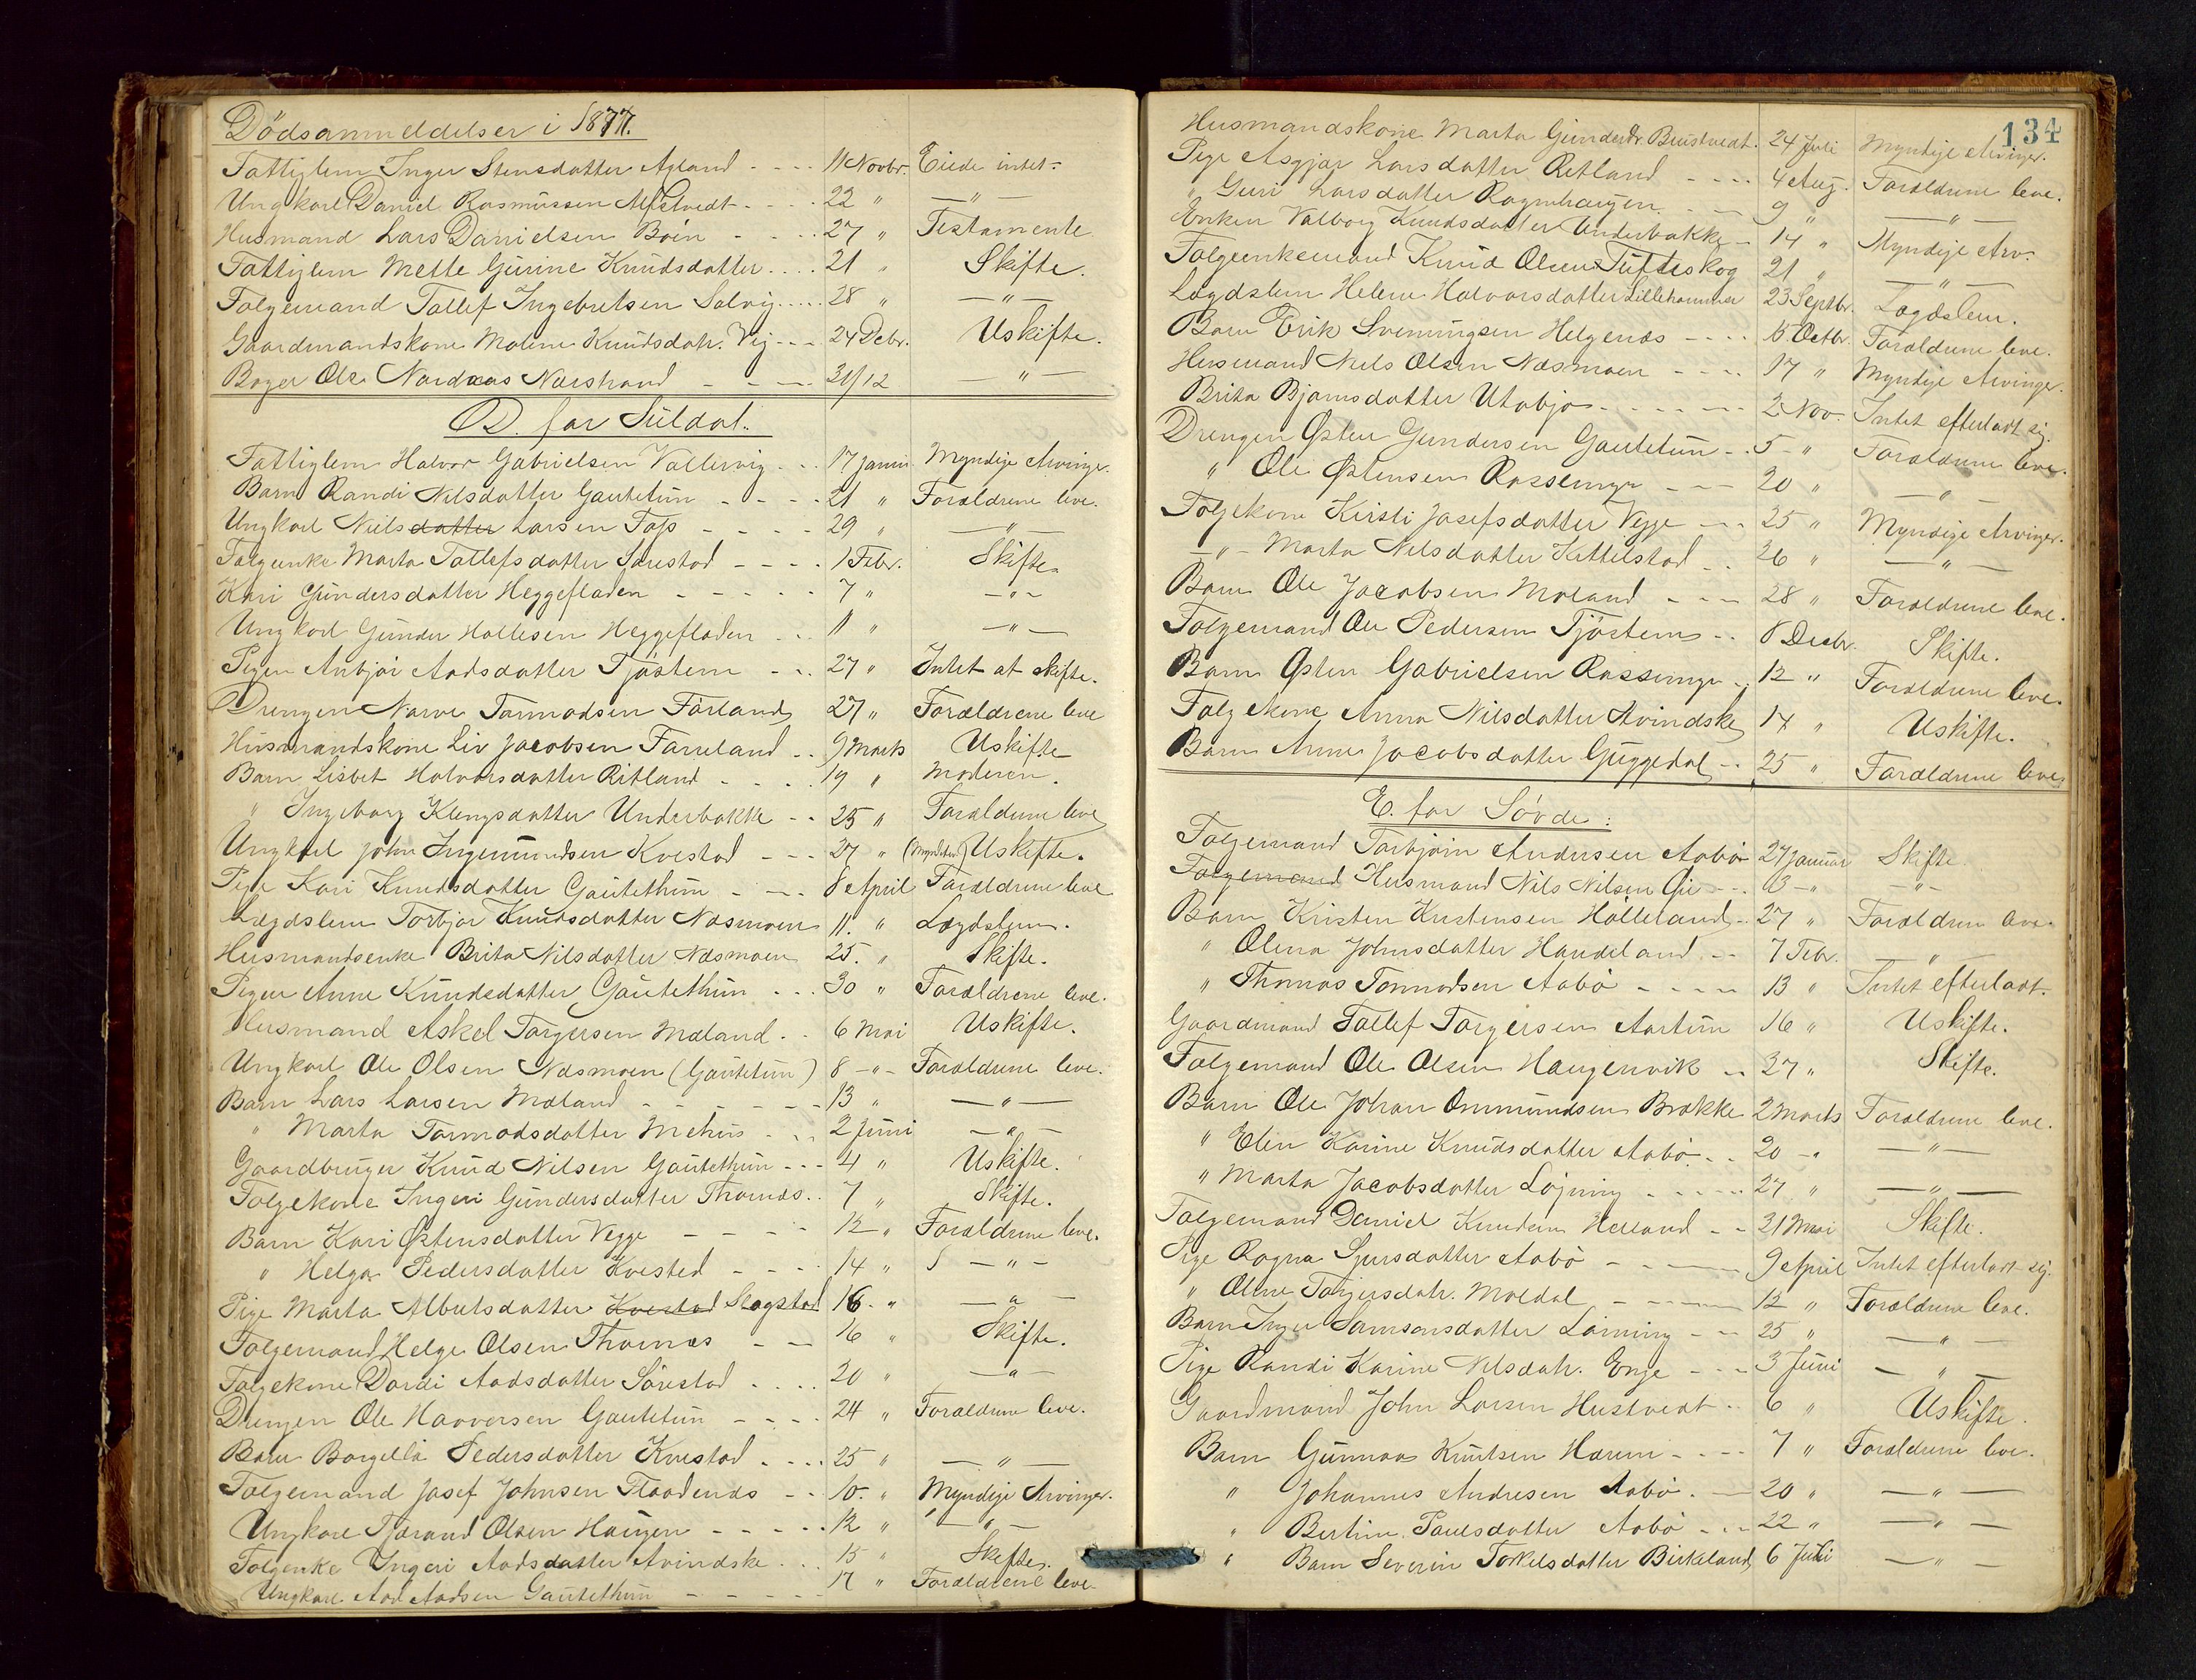 Dödsanmeldelser i 1877.
Fattiglem Inger Stensdatter Aqland - - - 11 Novbr. Eiede intet -
Ungkarl Daniel Rasmussen Mestvedt - - - 22 " — " —
Husmand Lars Danielsen Böin - - - 27 " Testamente
Fattiglem Mette Gurine Knudsdatter - - - 21 " Skifte.
Folgemand Tollef Ingebretsen Solvig - - - 28 " — " —
Gaardmandskone Malene Knudsdatr. Vig - - - 24 Debr. Uskifte.
Bager Ole Nordraas Nærstrand - - - 31/12 — " —
D. for Suldal.
Fattiglem Halvor Gabrielsen Vallervig - - - 17 Januar Myndige Arvinger.
Barn Randi Nilsdatter Gautetun - - - 21 " Forældrene leve.
Ungkarl Niels datter Larsen Fos - - - 29 " — " —
Folgeenke Marta Tollefsdatter Sørestad - - - 1 Febr. Skifte.
Kari Gundersdatter Heggefladen - - - 7 " — " —
Ungkarl Gunder Hollesen Heggefladen - - - 11 " — " —
Pigen Anbjør Aadsdatter Tjöstem - - - 27 " Intet at skifte.
Drengen Narve Tormodsen Förland 27 " Forældrene leve
Husmandskone Liv Jacobsen Farreland - - 9 Marts Uskifte
Barn Lisbet Halvorsdatter Ritland - - - 19 " Moderen.
" Ingeborg Klengsdatter Underbakke - - 25 " Forældrene leve
Ungkarl John Ingemundsen Kvestad - - - 27 " Uskifte.
Pige Kari Knudsdatter Gautethun - - - 8 April Forældrene leve
Lægdslem Torbjør Knutsdatter Næsmoen 11. " Lægdslem.
Husmandsenke Brita Nilsdatter Næsmoen 25. " Skifte.
Pigen Anne Knudsdatter Gautethun - - - 30 " Forældrene leve.
Husmand Askel Torgersen Mæland - - 6 Mai Uskifte.
Ungkarl Ole Olsen Næsmoen (Gautetun) 8 - " - Forældrene leve.
Barn Lars Larsen Mæland - - - 13 " — " —
" Marta Tormodsdatter Mehus - - 2 Juni — " —
Gaardbruger Knud Nilsen Gautethun - - - 4 " Uskifte.
Folgekone Ingeri Gundersdatter Thornæs - - 7 " Skifte.
Barn Kari Østensdatter Vegge - - - 12 " Forældrene leve.
" Helga Pedersdatter Kvested - - - 14 " — " —
Pige Marta Albertsdatter Kvestad Slogstad 16. " — " —
Folgemand Helge Olsen Thornæs - - 16 " Skifte.
Folgekone Dordi Aadsdatter Sørestad - - - 20 " — " —
Drengen Ole Havversen Gautetun - - - 24 " Forældrene leve.
Barn Borgella Pedersdatter Kvestad - - - 25 " — " —
Folgemand Josef Johnsen Floodenæs - - 10. " Myndige Arvinger.
Ungkarl Tjærand Olsen Haugen - - - 12 " — " —
Folgenke Ingeri Aadsdatter Arvindske - - 15 " Skifte.
Ungkarl Aad Aadsen Gautethun - - - 17 " Forældrene leve.
134
Husmandskone Marta Gundersdr. Brustvedt. 24 Juli Myndige Arvinger.
Pige Asgjær Larsdatter Ritland - - - 4 Aug. Forældrene leve.
" Guri Larsdatter Rognhaugen - - 9 " — " —
Enken Valborg Knudsdatter Underbakke - 14 " Myndige Arv.
Folgeenkemand Knud Olsen Tufteskog 21 " — " —
Lægdslem Helene Halvorsdatter Lillehammer 23 Septbr. Lægdslem.
Barn Erik Svenungsen Helgenæs - - - 15 Octbr. Forældrene leve.
Husmand Niels Olsen Næsmoen - - - 17 " Myndige Arvinger.
Brita Bjornsdatter Utabjo - - - 2 Nov. Intet efterladt sig.
Drengen Østen Gundersen Gautetun - - 5 - " Forældrene leve.
" Ole Østensen Rossemyr - - - 20 " — " —
Folgekone Kirsti Josefsdatter Vegge - - - 25 " Myndige Arvinger.
— " — Marta Nilsdatter Kattelstad - - 26 " — " —
Barn Ole Jacobsen Moland - - - 28 " Forældrene leve.
Folgemand Ole Pedersen Tjöstem - - 8 Decbr. Skifte.
Barn Østen Gabrielsen Rossemyr - - 12 " Forældrene leve.
Folgekone Anna Nilsdatter Arvindske 14 " Uskifte.
Barn Anne Jacobsdatter Guggedal - - 25 " Forældrene leve
E. for Sövde:
Folgemand Torbjörn Andersen Aabö 27 Januar Skifte.
Folgemand Husmand Nils Nilsen Øie - - 13 - " — " —
Barn Kristen Kristensen Hölleland - 27 " Forældrene leve.
" Olena Johnsdatter Handeland - - 7 Febr. — " —
" Thomas Tormodsen Aabö - - - 13 " Intet efterladt.
Gaardmand Tollef Torgersen Aartun 16 " Uskifte.
Folgemand Ole Olsen Haugenvik - - 27 " Skifte.
Barn Ole Johan Ommundsen Brække 2 Marts Forældrene leve.
" Elen Karine Knudsdatter Aabö - - 20 - " — " —
" Marta Jacobsdatter Löjning - - - 27 " — " —
Folgemand Daniel Knudsen Helland - - 31 Mai Skifte.
Pige Ragna Sjursdatter Aabö - - - 9 April Intet efterladt sig.
" Oline Torgersdatr. Moedal - - - 12 " Forældrene leve.
Barn Inger Samsonsdatter Löining - - 25 " — " —
Pige Randi Karine Nilsdatr. Enge - - - 3 Juni — " —
Gaardmand John Larsen Hustvedt - - 6 " Uskifte.
Barn Gunnar Knutsen Harum - - - 7 " Forældrene leve.
" Johannes Andresen Aabö - - 20 " — " —
" Bertine Paulsdatter Aabö - - - 22 " — " —
" Barn Severin Torkelsdatter Birkeland 6 Juli — " —